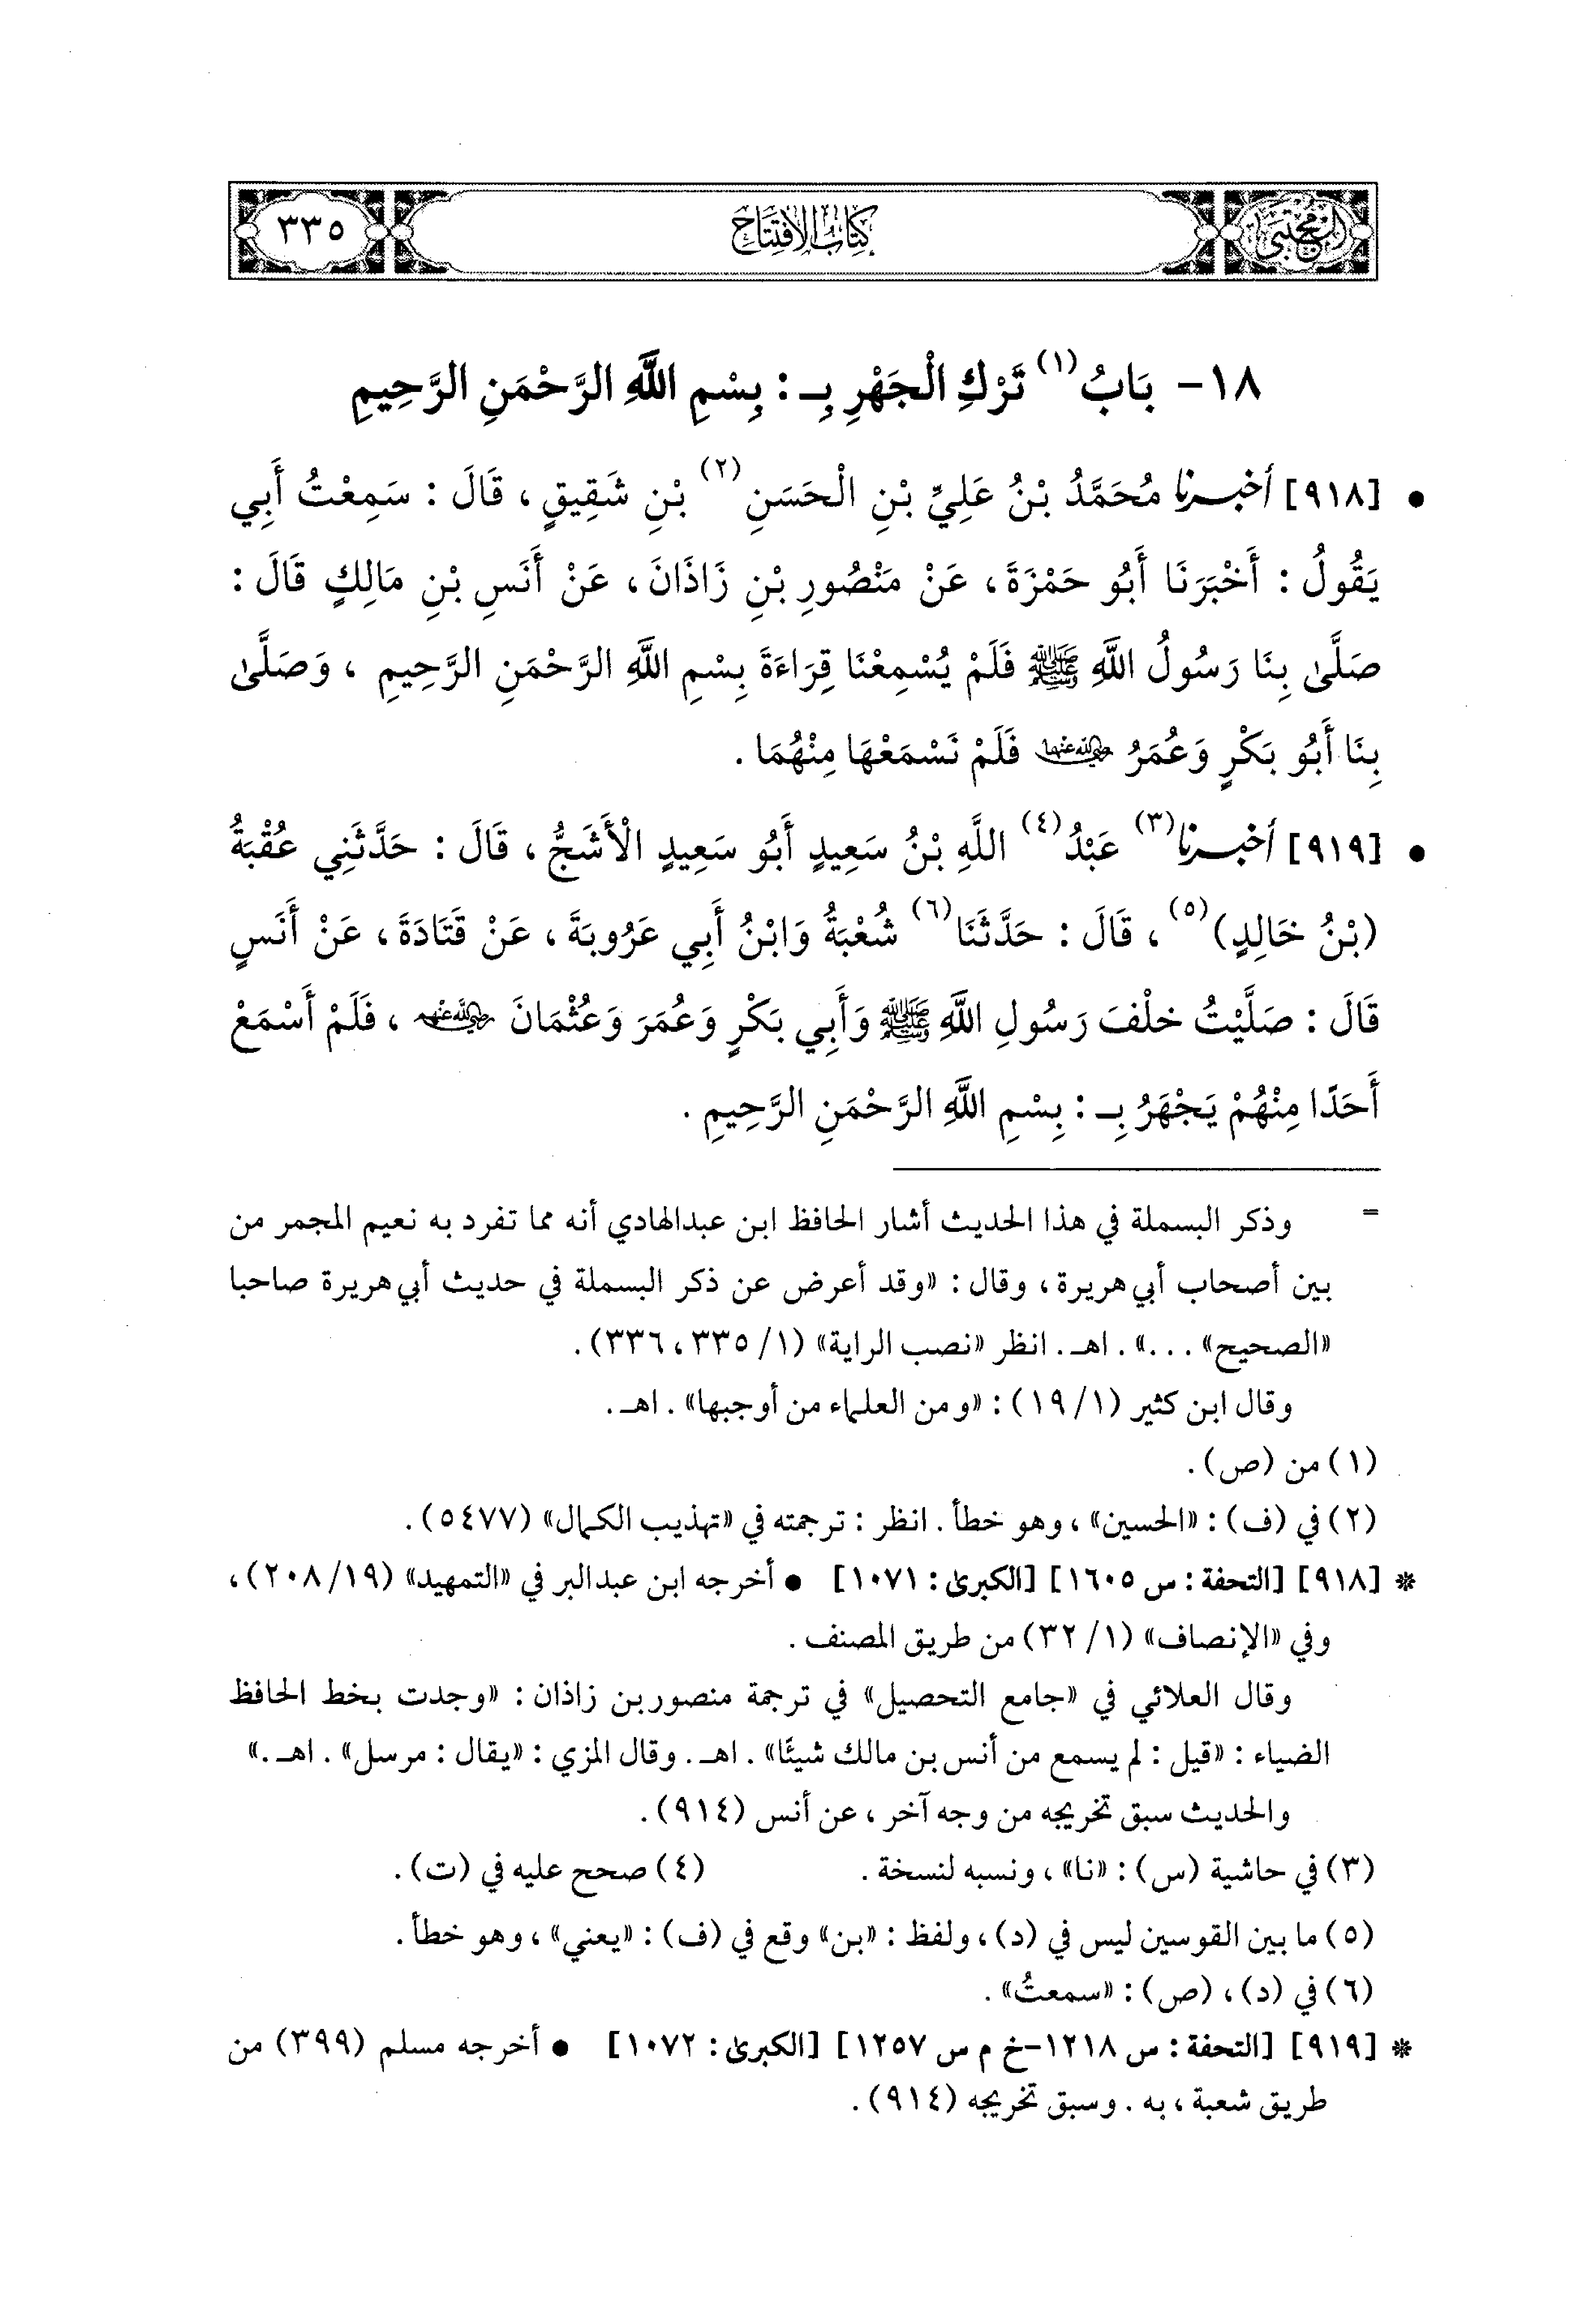 المجتبى
كِتَابُ الِافْتِتَاحِ
٣٣٥
١٨- بَابُ(١) تَرْكِ الْجَهْرِ بِـ : بِسْمِ اللَّهِ الرَّحْمَنِ الرَّحِيمِ
• [٩١٨] أخبرنا مُحَمَّدُ بْنُ عَلِيِّ بْنِ الْحَسَنِ(٢) بْنِ شَقِيقٍ، قَالَ : سَمِعْتُ أَبِي
يَقُولُ : أَخْبَرَنَا أَبُو حَمْزَةَ، عَنْ مَنْصُورِ بْنِ زَاذَانَ، عَنْ أَنَسِ بْنِ مَالِكٍ قَالَ :
صَلَّىٰ بِنَا رَسُولُ اللَّهِ ﷺ فَلَمْ يُسْمِعْنَا قِرَاءَةَ بِسْمِ اللَّهِ الرَّحْمَنِ الرَّحِيمِ ، وَصَلَّىٰ
بِنَا أَبُو بَكْرٍ وَعُمَرُ رضي الله عنهما فَلَمْ نَسْمَعْهَا مِنْهُمَا .
• [٩١٩] أخبرنا(٣) عَبْدُ(٤) اللَّهِ بْنُ سَعِيدٍ أَبُو سَعِيدٍ الْأَشَجُّ، قَالَ : حَدَّثَنِي عُقْبَةُ
(بْنُ خَالِدٍ)(٥)، قَالَ : حَدَّثَنَا(٦) شُعْبَةُ وَابْنُ أَبِي عَرُوبَةَ، عَنْ قَتَادَةَ، عَنْ أَنَسٍ
قَالَ : صَلَّيْتُ خلْفَ رَسُولِ اللَّهِ ﷺ وَأَبِي بَكْرٍ وَعُمَرَ وَعُثْمَانَ رضي الله عنهم ، فَلَمْ أَسْمَعْ
أَحَدًا مِنْهُمْ يَجْهَرُ بِـ : بِسْمِ اللَّهِ الرَّحْمَنِ الرَّحِيمِ .
= وذكر البسملة في هذا الحديث أشار الحافظ ابن عبدالهادي أنه مما تفرد به نعيم المجمر من
بين أصحاب أبي هريرة، وقال : «وقد أعرض عن ذكر البسملة في حديث أبي هريرة صاحبا
«الصحيح» . . .» . اهـ. انظر «نصب الراية» (١/ ٣٣٥، ٣٣٦).
وقال ابن كثير (١/ ١٩) : «ومن العلماء من أوجبها» . اهـ.
(١) من (ص).
(٢) في (ف) : «الحسين» ، وهو خطأ . انظر : ترجمته في «تهذيب الكمال» (٥٤٧٧).
* [٩١٨] [التحفة : س ١٦٠٥] [الكبرىٰ : ١٠٧١] • أخرجه ابن عبدالبر في «التمهيد» (١٩/ ٢٠٨)،
وفي «الإنصاف» (١/ ٣٢) من طريق المصنف .
وقال العلائي في «جامع التحصيل» في ترجمة منصور بن زاذان : «وجدت بخط الحافظ
الضياء : «قيل : لم يسمع من أنس بن مالك شيئًا» . اهـ. وقال المزي : «يقال : مرسل» . اهـ.»
والحديث سبق تخريجه من وجه آخر ، عن أنس (٩١٤).
(٣) في حاشية (س) : «نا» ، ونسبه لنسخة . (٤) صحح عليه في (ت).
(٥) ما بين القوسين ليس في (د) ، ولفظ : «بن» وقع في (ف) : «يعني» ، وهو خطأ.
(٦) في (د) ، (ص) : «سمعتُ» .
* [٩١٩] [التحفة : س ١٢١٨-خ م س ١٢٥٧] [الكبرىٰ : ١٠٧٢] • أخرجه مسلم (٣٩٩) من
طريق شعبة ، به . وسبق تخريجه (٩١٤).